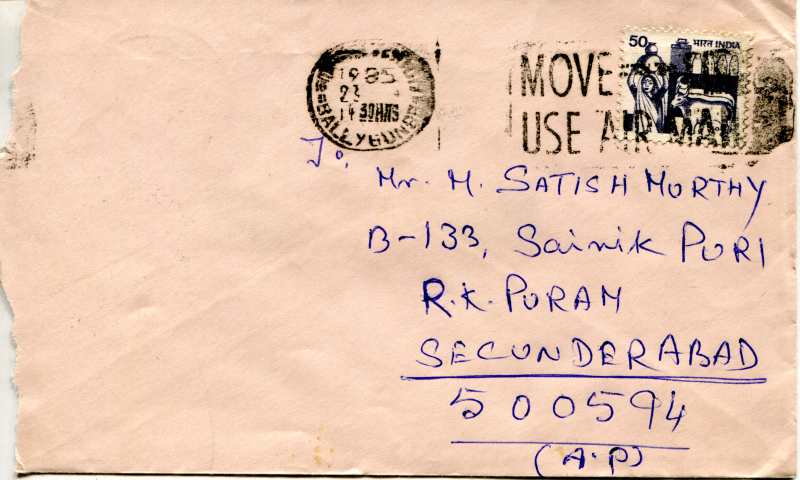 1985
23 4
14 30HRS
BALLYGUNGE
MOVE
USE AIR MAIL
50 भारत INDIA
To,
Mr. M. SATISH MURTHY
B-133, Sainik PURI
R.K. PURAM
SECUNDERABAD
500594
(A.P)